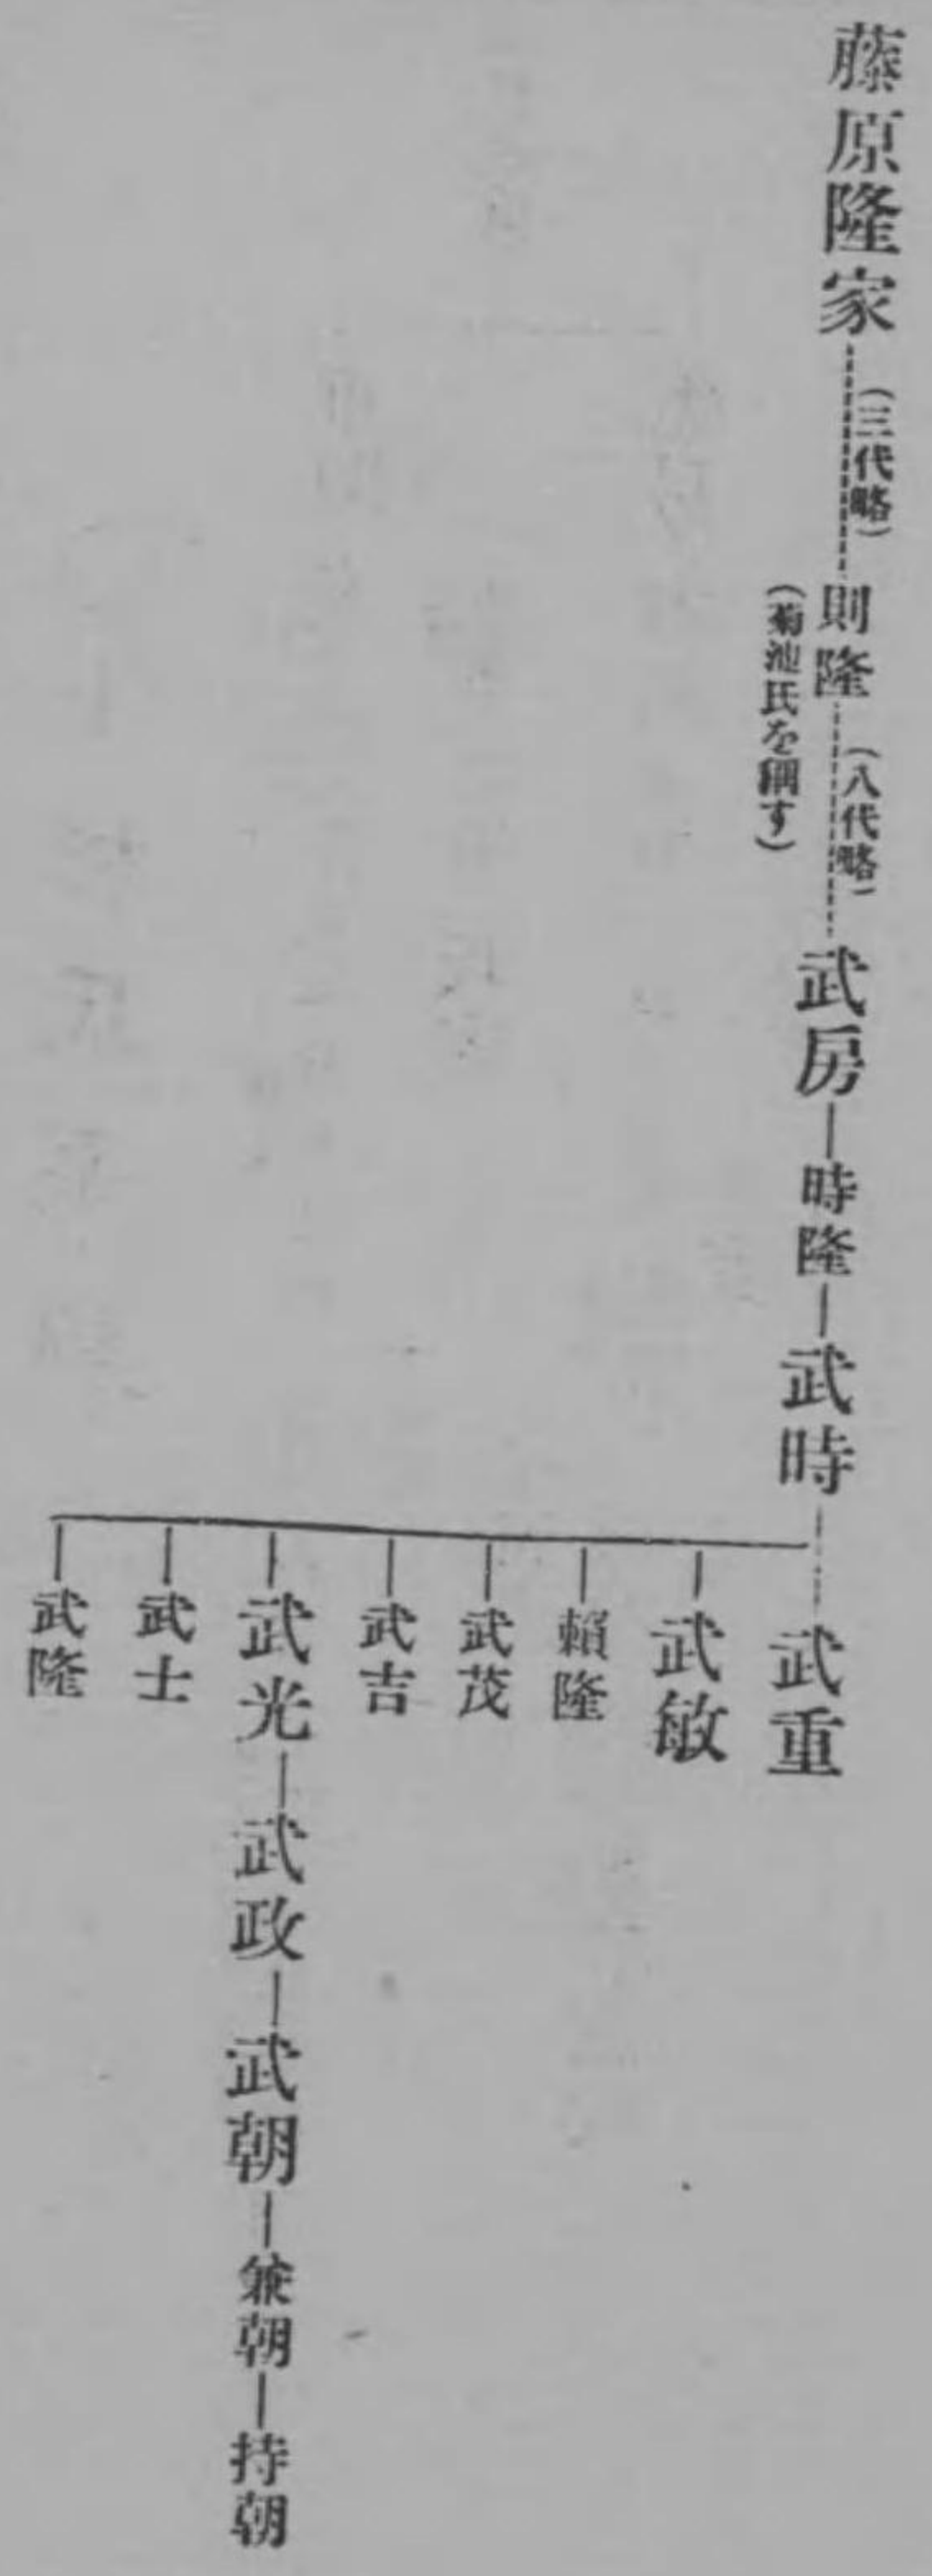 藤原隆家
(三代略)
則隆
(菊池氏を稱す)
(八代略)
武房
時隆
武時
武重
武敏
賴隆
武茂
武吉
武光
武政
武朝
兼朝
持朝
武士
武隆